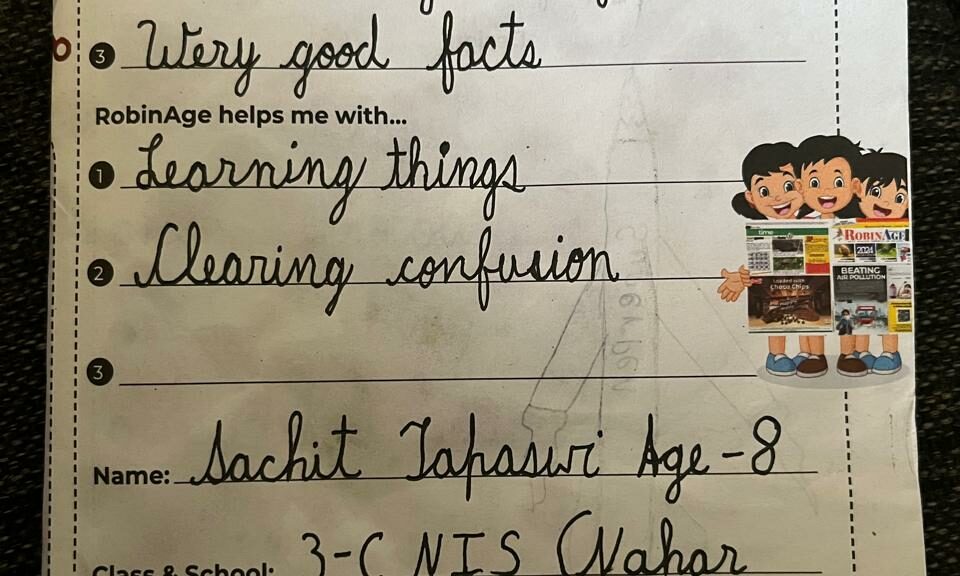 3 Wery good facts
RobinAge helps me with...
1 Learning things
2 Clearing confusion
3
Name: Sachit Tapaswi Age - 8
Class & School: 3-C NIS (Nahar
time
ROBINAGE
2024
BEATING
AIR POLLUTION
Loaded with
Choco Chips